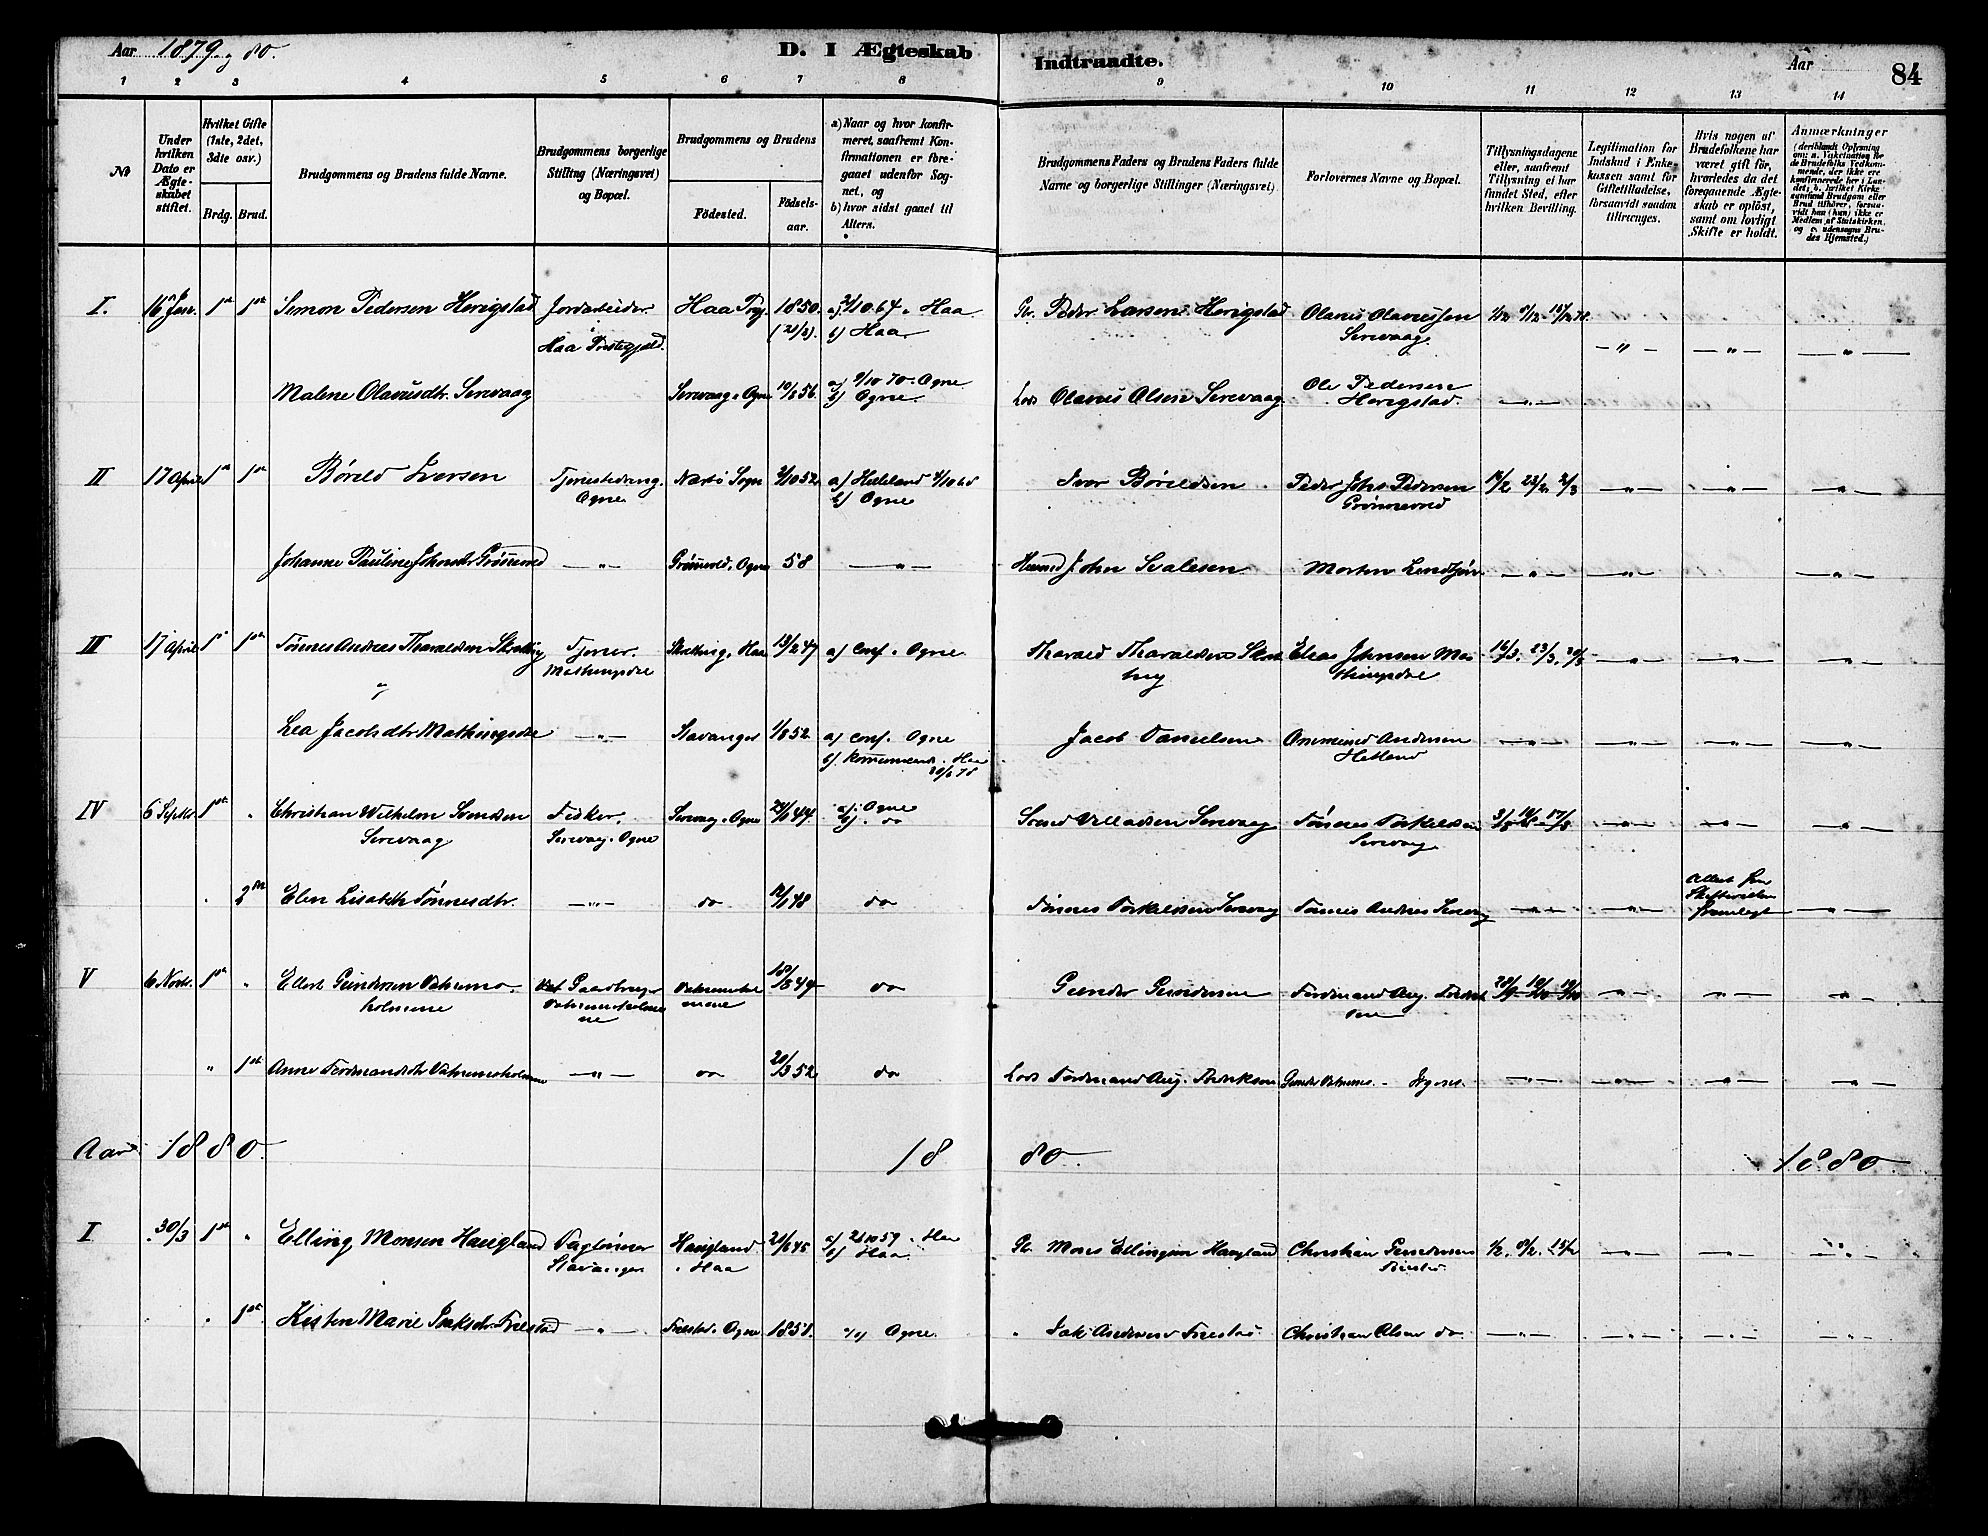 Aar 1879 og 80.
D. I Ægteskab
Indtraadte.
Aar
84
1 2 3 4 5 6 7 8 9 10 11 12 13 14
No
Under hvilken Dato er Ægteskabet stiftet.
Hvilket Gifte (1ste, 2det, 3die osv.)
Brdg. Brud.
Brudgommens og Brudens fulde Navne.
Brudgommens borgerlige Stilling (Næringsvei) og Bopæl.
Brudgommens og Brudens
Födested.
Födsels-aar.
a) Naar og hvor konfirmeret, saafremt Konfirmationen er foregaaet udenfor Sognet, og
b) hvor sidst gaaet til Alters.
Brudgommens Faders og Brudens Faders fulde Navne og borgerlige Stillinger (Næringsvei).
Forlovernes Navne og Bopæl.
Tillysningsdagene eller, saafremt Tillysning ei har fundet Sted, efter hvilken Bevilling.
Legitimation for Indskud i Enkekassen samt for Giftetilladelse, forsaavidt saadan tiltrænges.
Hvis nogen af Brudefolkene har været gift før, hvorledes da det foregaaende Ægteskab er oplöst, samt om lovligt Skifte er holdt.
Anmærkninger
(deriblandt Oplysning om: a. Vakcination for de Brudefolks Vedkommende, der ikke ere konfirmerede her i Landet; b. hvilket Kirkesamfund Brudgom eller Brud tilhörer, forsaavidt han (hun) ikke er Medlem af Statskirken, og c. udensogns Brudes Hjemsted.)
I. 16 Jan. 1st 1st Simon Pedersen Herigstad Jordarbeider Haa Prgj. 1850. (21/2). a) 2/10 64. Haa b) Haa Gb. Peder Larsen Herigstad Olaves Olavessen Serevaag 1/12 8/12 15/12 78.
Haa Prestegjæld.
Malene Olavesdtr. Serevaag Serevaag, Ogne 10/8 56. a) 9/10 70. Ogne b) Ogne. Lods Olaves Olsen Serevaag Ole Pedersen Herigstad.
II 17 April 1st 1st Børild Iversen Tjenestedreng. Ogne Nærbø Sogn 2/10 52 a) Helleland 4/10 68 b) Ogne Iver Børildsen Peder Johs Pedersen Grønnevold 16/2 23/2 2/3
Johanne Pauline Johnsdtr Grønnevold Grønnevold, Ogne 58 John Svalesen Morten Lendtjørn
III 17 April 1st 1st Tønnes Andreas Tharaldsen Skretting Tjener. Mathingsdal Skretting, Haa 13/2 47 a) Conf. Ogne Tharald Tharaldsen Skretting Elias Johnsen Mathingsdal 16/3. 23/3. 30/3
Lea Jacobsdtr Mathingsdal Stavanger 1/8 52 a) Conf. Ogne Jacob Danielsen Ommund Andersen Hetland
IV 6 Septbr 1st Christian Wilhelm Svendsen Serevaag Fisker. Serevaag, Ogne Serevaag, Ogne a) Ogne b) do Svend Villadsen Serevaag Tønnes Torkildsen Serevaag 3/8 10/8 17/8
2den Elen Lisabeth Tønnesdtr. do 48 do Tønnes Torkildsen Serevaag Tønnes Andreas Serevaag
V 6 Novbr. 1st Ellert Gundersen Vatnemoholmene Gaardbruger Vatnemoholmene 49 do Gunder Gundersen Ferdinand Aug. 28/9
1st Anne Ferdinandsdtr Vatnemoholmene do 20/3 52 do Lods Ferdinand Aug.
Aar 1880. 1880. 1880.
I 30/3 1st Elling Monsen Haugland Daglønner Stavanger Haugland, Haa 45 a) 2/10 59. Haa b) Haa Gb. Moses Ellingsen Haugland Christian Gundersen 1/2. 8/2. 15/2
1st Kisten Marie Isaksdtr. Ogne 1858. Ogne. Isak Andersen Christian Olsen do